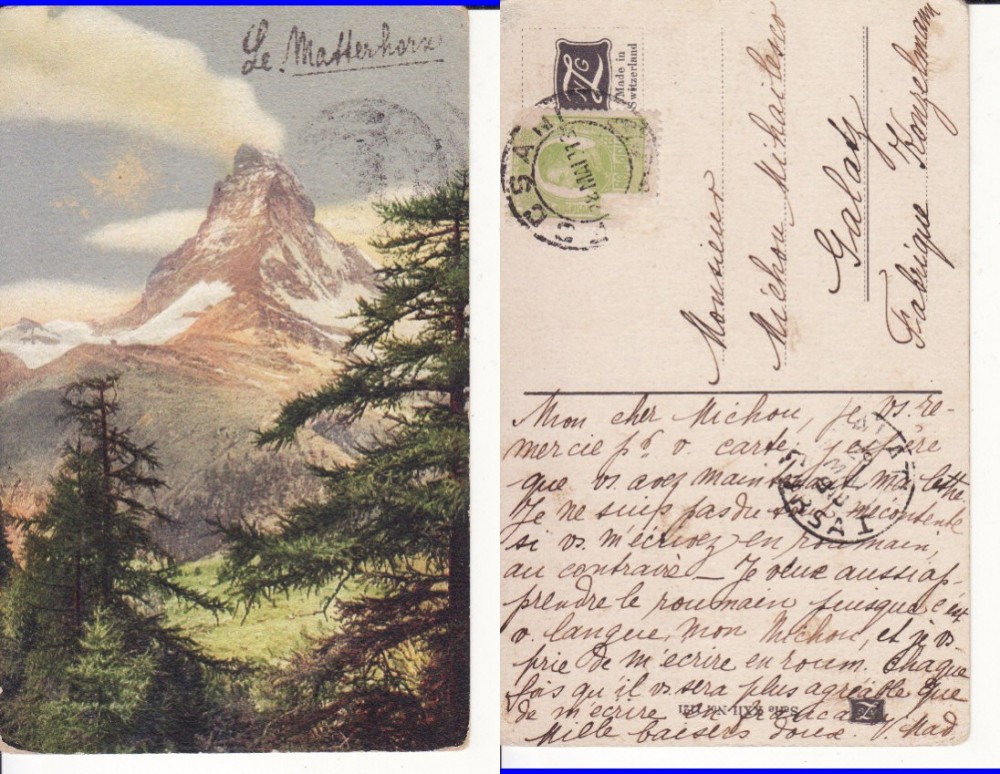 Le Matterhorn
Made in
Switzerland
Monsieur
Michou Mihailesco
Galatz
Fabrique Konzelmann
Mon cher Michou, Je vs. re-
mercie pr v. carte, j'espère
que vs. avez maintenant ma lettre
Je ne suis pas du mécontente
si vs. m'écrivez en roumain,
au contraire – Je veux aussi ap-
prendre le roumain puisque c'est
v. langue, mon Michou, et je vs
prie de m'écrire en roum. chaque
fois qu'il vs. sera plus agréable que
de m'écrire en francais
Mille baisers doux. V. Mad.
Serie XXII No.